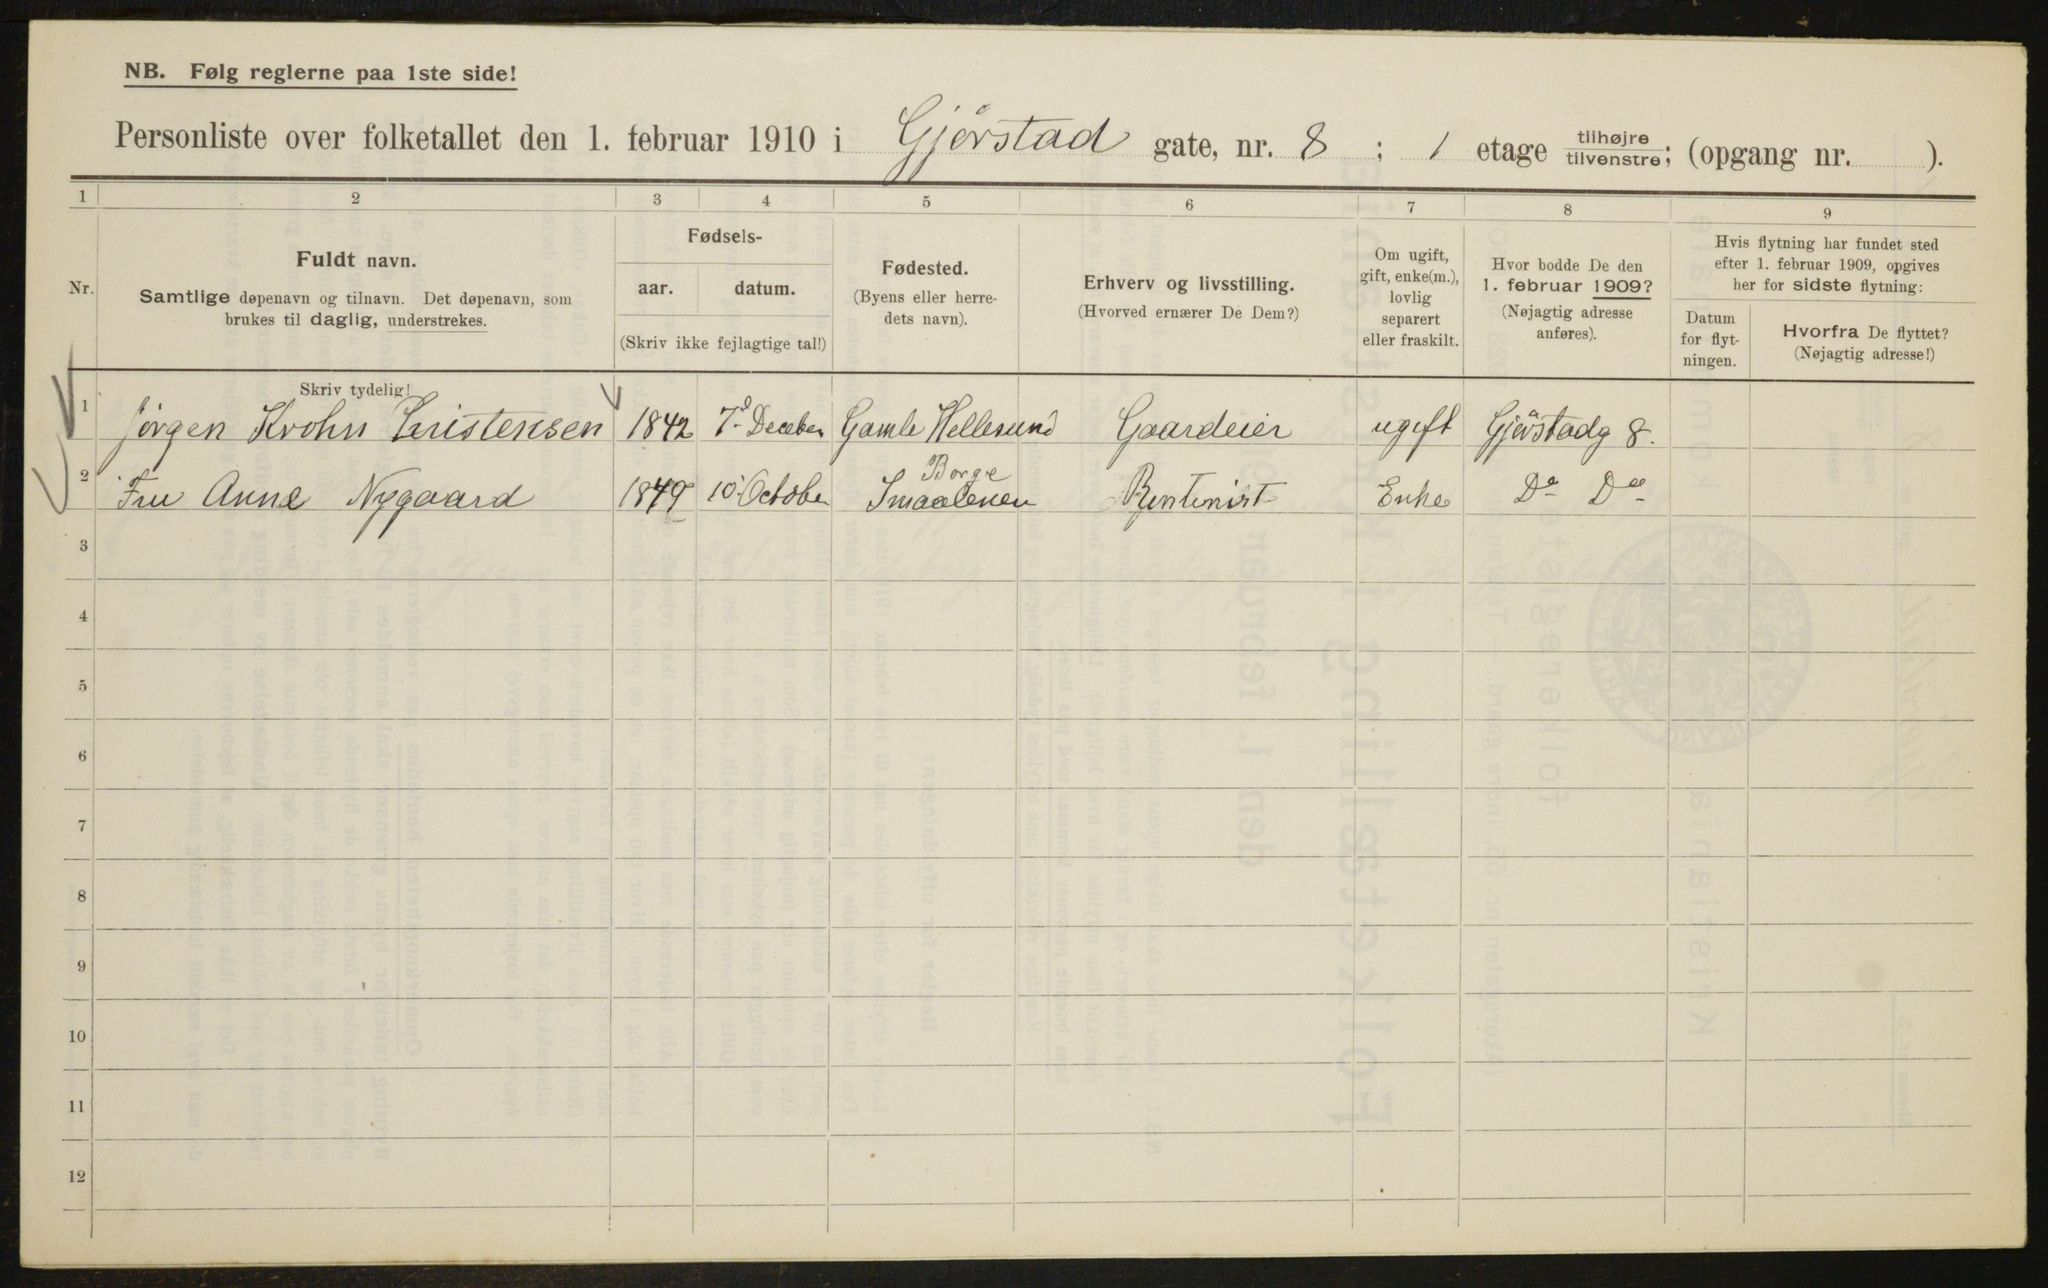 NB. Følg reglerne paa 1ste side!
Personliste over folketallet den 1. februar 1910 i Gjørstad gate, nr. 8 ; 1 etage tilhøjre tilvenstre; (opgang nr. ).
1 2 3 4 5 6 7 8 9
Nr.
Fuldt navn.
Samtlige døpenavn og tilnavn. Det døpenavn, som
brukes til daglig, understrekes.
Fødsels-
aar. datum.
(Skriv ikke fejlagtige tal!)
Fødested.
(Byens eller herre-
dets navn).
Erhverv og livsstilling.
(Hvorved ernærer De Dem?)
Om ugift,
gift, enke(m.),
lovlig
separert
eller fraskilt.
Hvor bodde De den
1. februar 1909?
(Nøjagtig adresse
anføres).
Hvis flytning har fundet sted
efter 1. februar 1909, opgives
her for sidste flytning:
Datum
for flyt-
ningen.
Hvorfra De flyttet?
(Nøjagtig adresse!)
Skriv tydelig!
1 Jørgen Krohn Christensen 1842 7d December Gamle Hellesund Gaardeier ugift Gjørstadg 8.
2 Fru Anne Nygaard 1849 10. October Borge Smaalenene Rentenist Enke Do Do
3
4
5
6
7
8
9
10
11
12